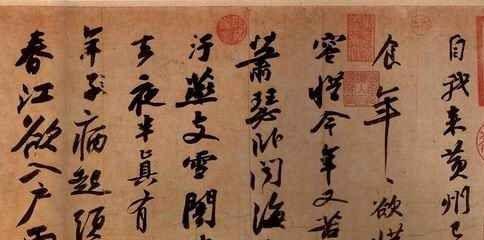 自我來黃州已
食年〻欲惜
容惜今年又苦
蕭瑟臥聞海
汙燕支雪闇
去夜半真有
年子病起須
春江欲入戶雨